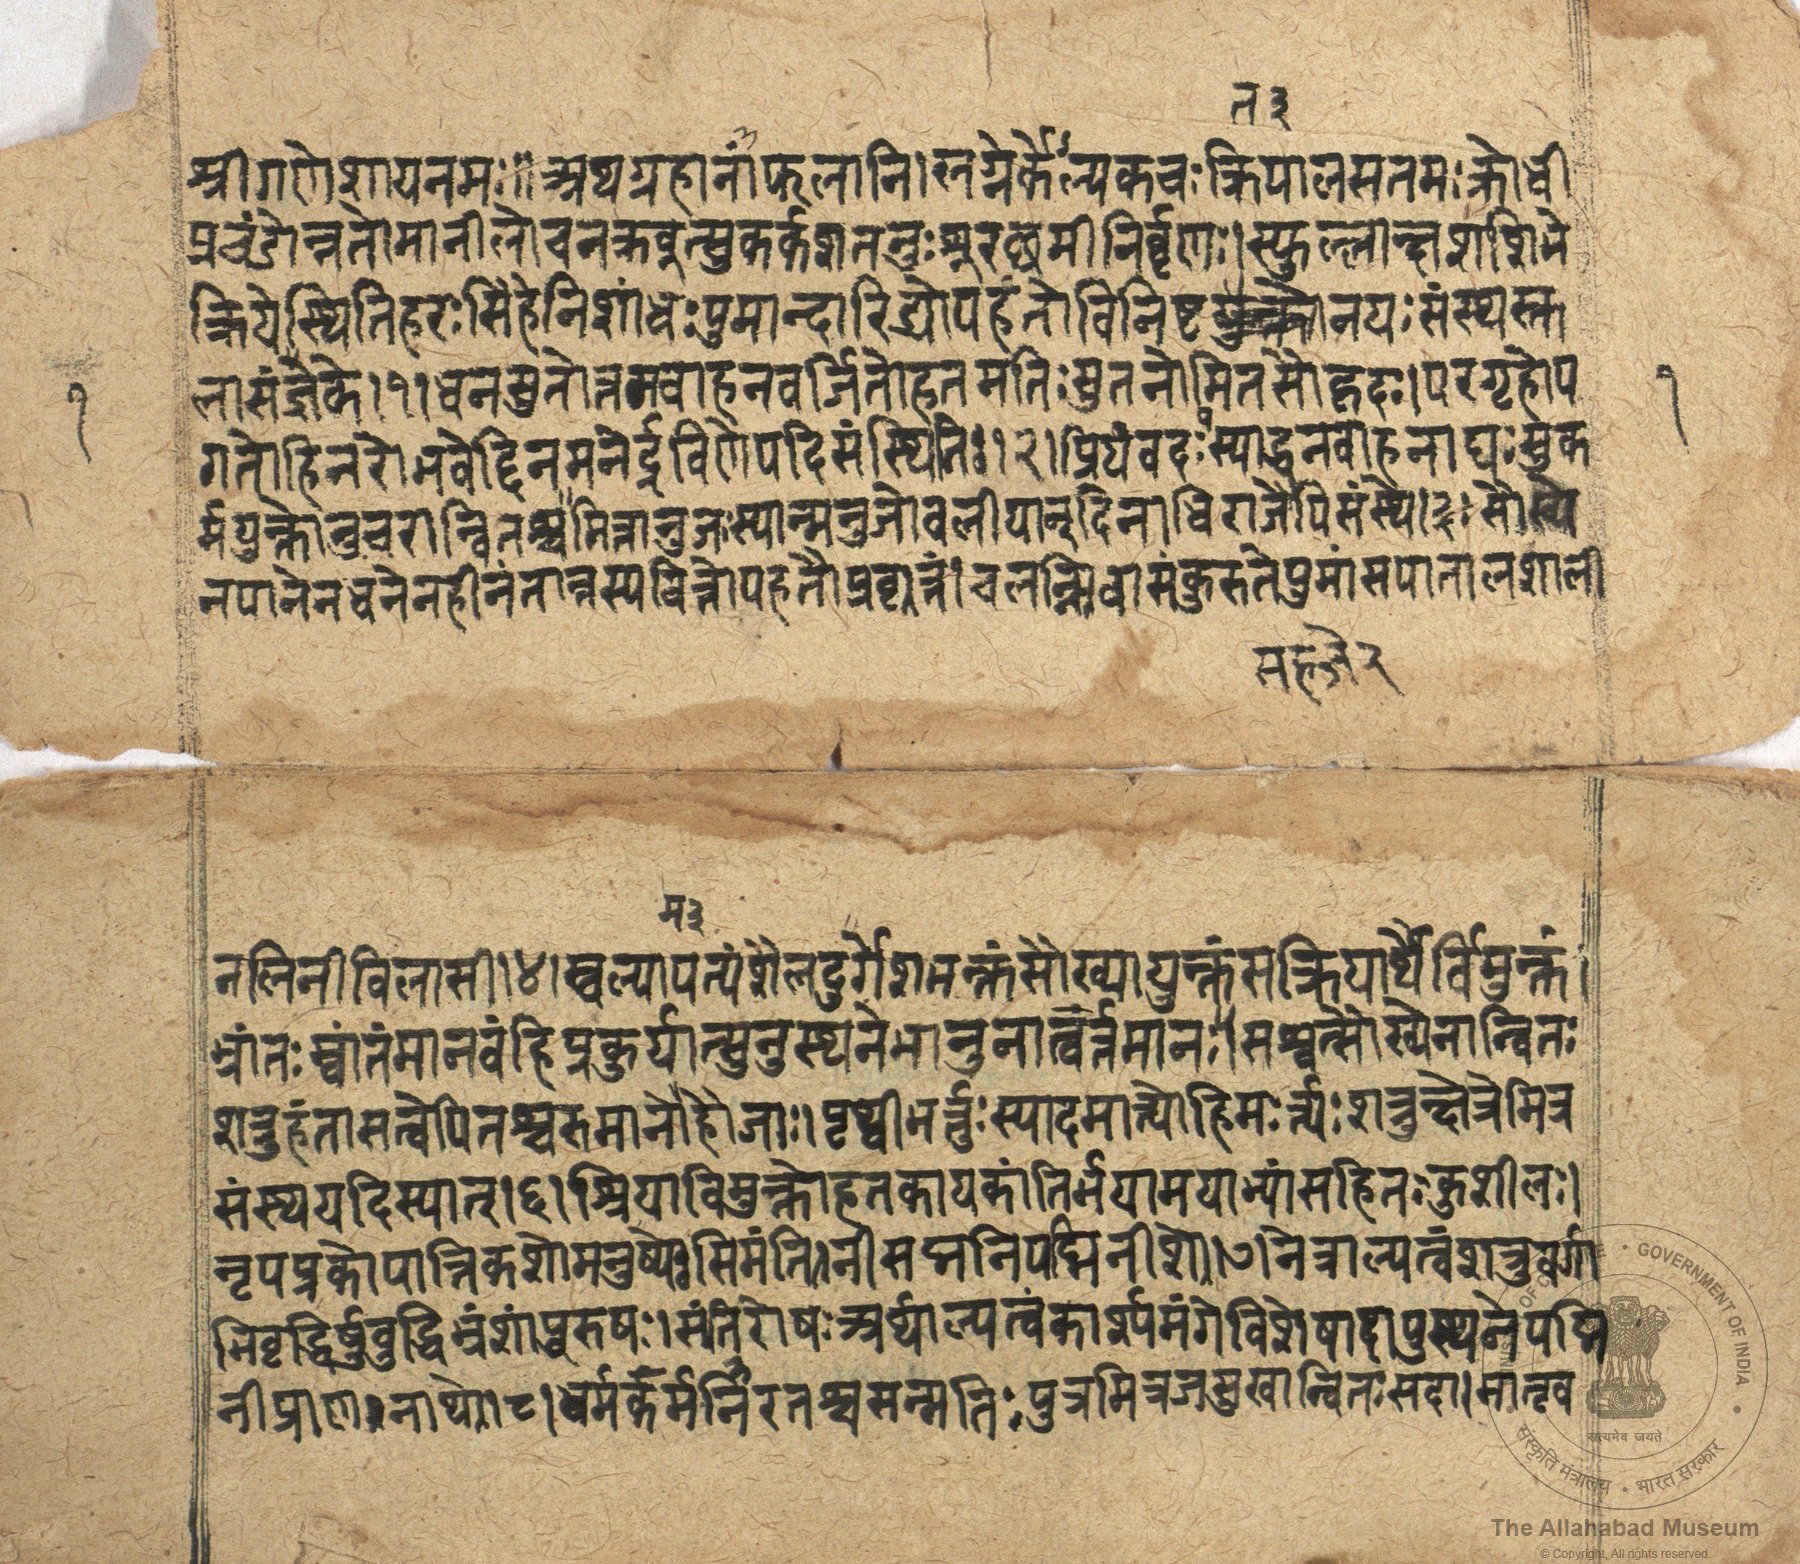 त ३
श्रीगणेशायनमः॥ अथग्रहानांफलानि। लग्नेर्केल्यकचः क्रियालसतमः क्रोधी
प्रचंडोन्नतोमानीलोचन सुकर्कशतनुः शूरक्षमीनिर्घृणः। स्फुल्लान्दाशशिभे
क्रियेस्थितिहरः सिंहेनिशांधः पुमान्दारिद्योपहंतोविनिष्ट नयः संस्थस्तु
लासंज्ञके।१। धनसुतोत्तमवाहनवर्जितोहतमतिः सुतनोमितसौहृदः। परगृहोप
१
१
गतोहिनरोभवेद्दिनमनेर्द्रविणेपदिसंस्थितिः।२। प्रियंवदः स्याद्धनवाहनाघः सुक
र्मयुक्तोनुचरान्वितश्च मितानुजः स्यान्मनुजोवलीयान्दिनाधिराजेपिसंस्थे।३। सौख्ये
नपानेनधनेनहीनंतान्नस्यवित्तोपहतौप्रवृत्तं। चलन्निवासंकुरुतेपुमांसपातालशाली
म३
नलिनीविलासी।४। स्वल्यापत्यंशैलदुर्गेशभक्तंसौख्यायुक्तंसक्रियार्थैर्विमुक्तं।
भ्रांतः स्वांतंमानवंहिप्रकुर्यात्सुनुस्थनेभानुनात्वर्त्तमानः। सश्वत्सौख्येनान्वितः
शत्रुहंतासत्वेपितश्चरुमानोहौजाः। पृथ्वीभर्तुः स्यादमात्योहिमःर्त्यः शत्रुन्दोत्रेमित्र
संस्थयदिस्यात्।६। श्रियाविमुक्तोहतकायकांतिर्भयामयाभ्यांसहितः कुशीलः।
नृपप्रकोपात्तिकशोमनुष्यः सिमंतिनीसद्मनिपद्मिनीशे।७। नेत्राल्पत्वंशत्रुवर्गा
भिवृद्धिर्षुवुद्धिभ्रंशांपुरुषः। सतिरोषः अर्थाल्पत्वंकार्श्यमंगेविशेषादायुस्थनेपद्मि
नीप्राणनाथे।८। धर्मकर्मनिरतश्चसन्मतिः पुत्रमित्रजसुखान्वितः सदा। मातृव
सत्यमेव जयते
GOVERNMENT OF INDIA
संस्कृति मंत्रालय • भारत सरकार
The Allahabad Museum
© Copyright, All rights reserved.